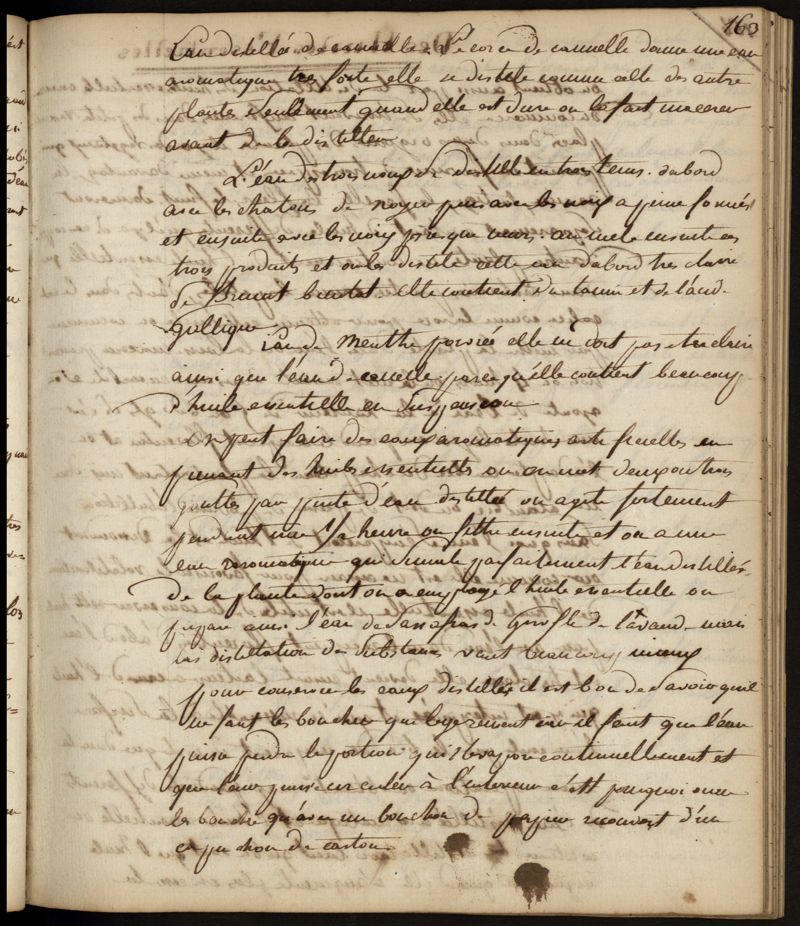 163
L'eau distillée de cannelle. L'ecorce de cannelle donne une eau
aromatique tres forte, elle se distile comme celle des autre
plantes seulement quand elle est dure on la fait macerer
avant de la distiller
L'eau des trois noix se distille en trois tems. dabord
avec les chatons de noyer puis avec les noix a peine formés
et ensuite avec les noix presque mures. on mele ensuite ces
trois produits et on les distile cette eau d'abord tres claire
se brunit bientot elle contient du tanin et de l'acid.
Gallique
L'eau de Menthe poivrée elle ne doit pas etre claire
ainsi que l'eau de cannelle parcequ'elle contient beaucoup
d'huile essentielle en suspension
On peut faire des eaux aromatiques artificielles en
prenant des huiles essentielles on en met deux ou trois
gouttes par pinte d'eau distillée on agite fortement
pendant une 1/2 heure on filtre ensuite et on a une
eau aromatique qui simule parfaitement l'eau distillée
de la plante dont on a employé l'huile essentielle on
prepare ainsi l'eau de Sassafras de Gerofle de lavand. mais
la distilation des substances vaut beaucoup mieux
pour conserver les eaux distillées il est bon de savoir qu'il
ne faut les boucher que legerement car il faut que l'eau
puisse perdre la portion qui s'evapore continuellement et
que l'air puisse circuler à l'interieur c'est pourquoi on ne
les bouche qu'avec un bouchon de papier recouvert d'un
capuchon de carton